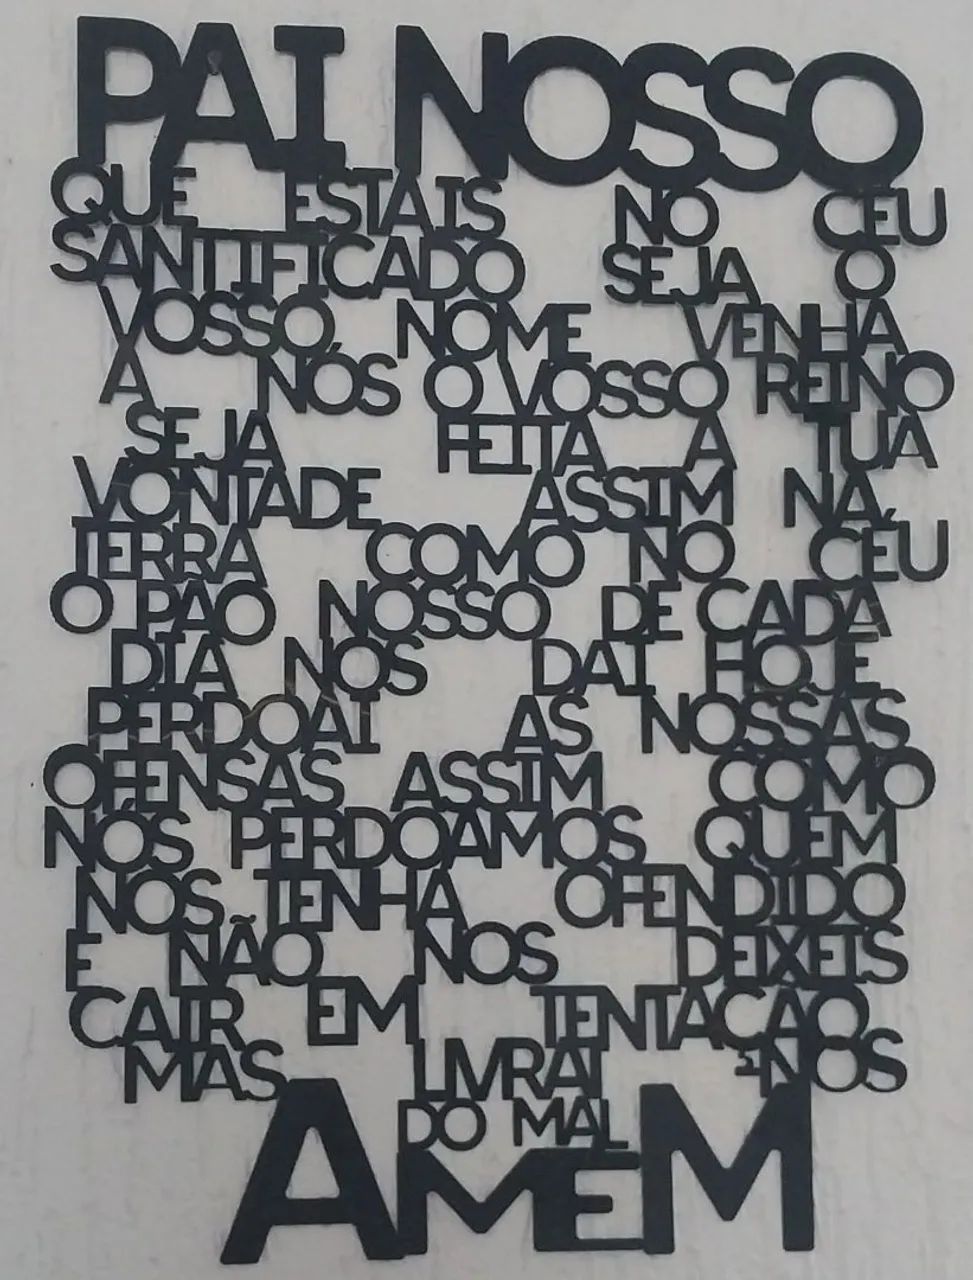 PAI NOSSO
QUE ESTAIS NO CEU
SANTIFICADO SEJA O
VOSSO NOME VENHA
Á NÓS O VOSSO REINO
SEJA FEITA A TUA
VONTADE ASSIM NA
TERRA COMO NO CÉU
O PAO NOSSO DE CADA
DIA NOS DAI HOJE
PERDOAI AS NOSSAS
OFENSAS ASSIM COMO
NÓS PERDOAMOS QUEM
NOS TENHA OFENDIDO
E NÃO NOS DEIXEIS
CAIR EM TENTAÇÃO
MAS LIVRAI-NOS
DO MAL
AMEM